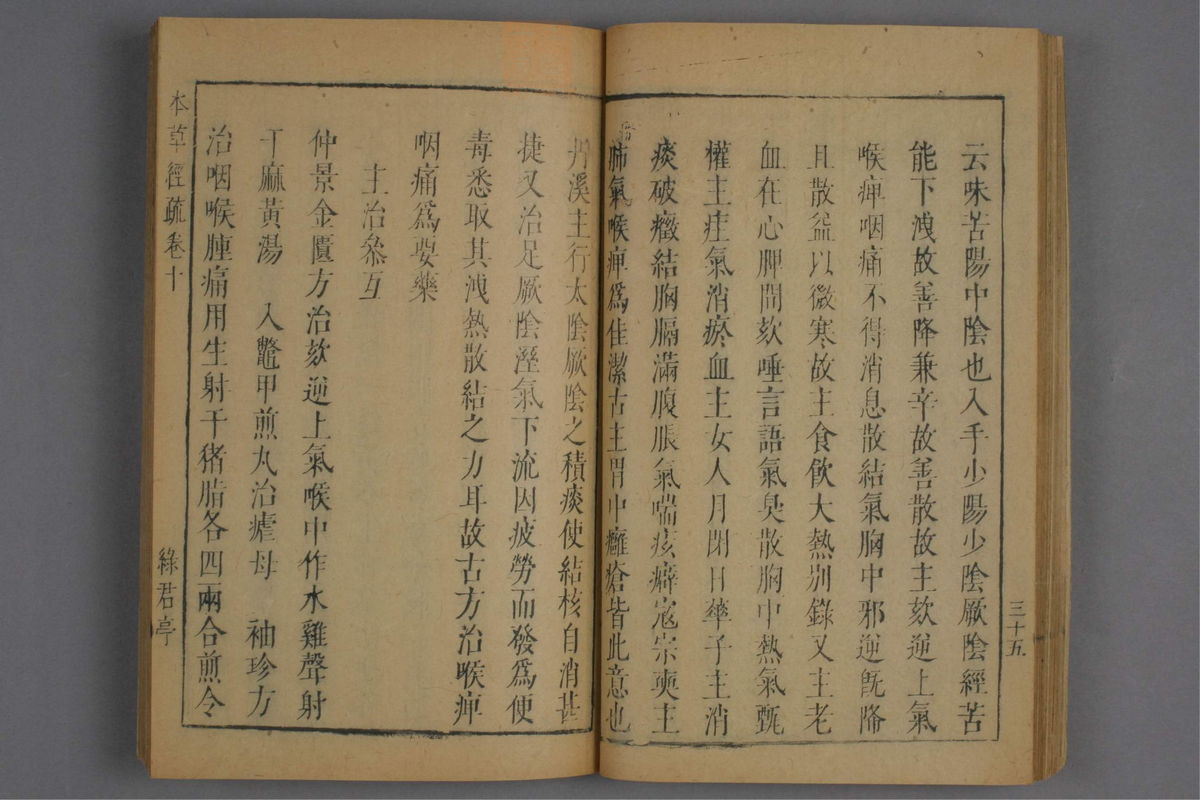 云味苦陽中陰也入手少陽少陰厥陰經苦
能下洩故善降兼辛故善散故主欬逆上氣
喉痺咽痛不得消息散結氣胸中邪逆旣降
且散益以微寒故主食飲大熱別錄又主老
血在心脾間欬唾言語氣臭散胸中熱氣甄
權主疰氣消瘀血主女人月閉日華子主消
痰破癥結胸膈滿腹脹氣喘痃癖寇宗奭主
肺氣喉痺爲佳潔古主胃中癰瘡皆此意也
丹溪主行太陰厥陰之積痰使結核自消甚
捷又治足厥陰溼氣下流因疲勞而發爲便
毒悉取其洩熱散結之力耳故古方治喉痺
咽痛爲要藥
主治叅互
仲景金匱方治欬逆上氣喉中作水雞聲射
干麻黃湯　入鼈甲煎丸治瘧母　袖珍方
治咽喉腫痛用生射干猪脂各四兩合煎令
三十五
本草經疏卷十
綠君亭